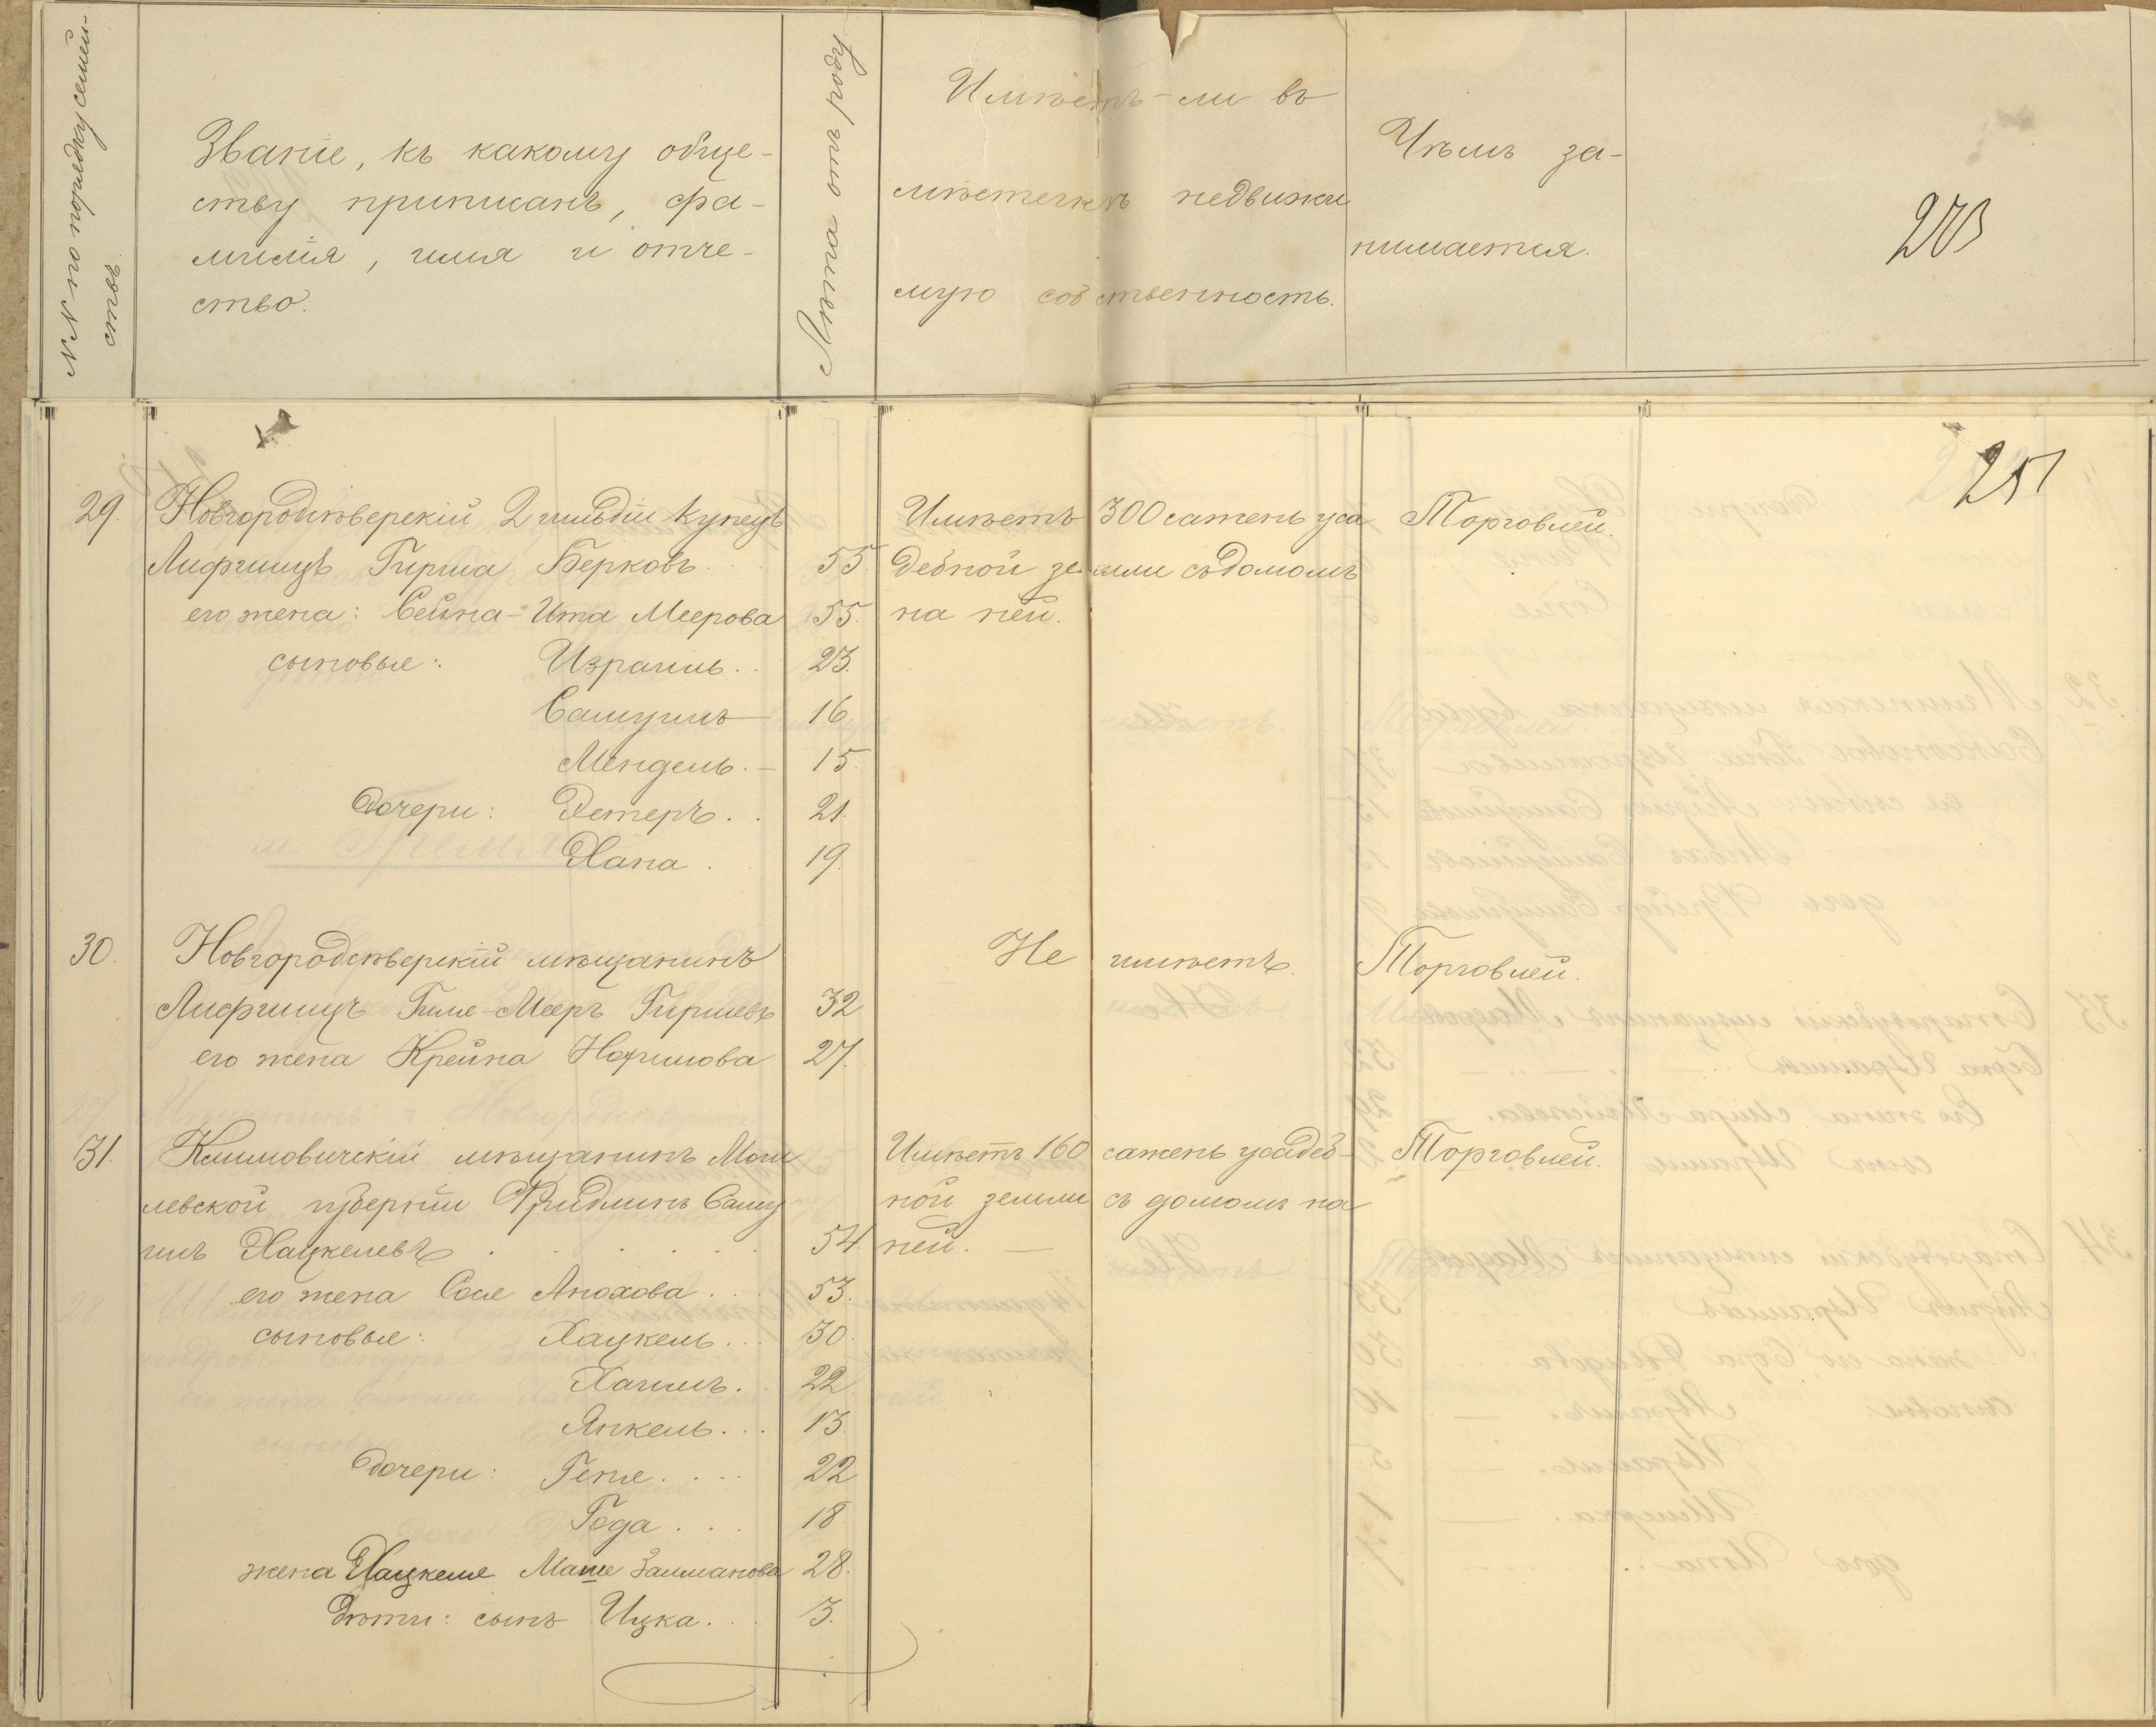 №№ по порядку семей-
ствъ.
Званіе, къ какому обще-
ству приписанъ, фа-
милія, имя и отче-
ство.
Лѣта отъ роду
Имѣетъ-ли въ
мѣстечкѣ недвижи
мую собственность.
Чѣмъ за-
нимается.
203
251
29. Новгородсѣверскій 2 гильдіи купецъ Имѣетъ 300 сажень уса Торговлей.
Лифшицъ Гирша Берковъ 55 дебной земли съ домомъ
его жена: Сейна-Ита Меерова 55. на ней.
сыновья: Израиль.. 23.
Самуилъ 16.
Мендель.- 15.
Дочери: Эстеръ.. 21.
Хана. 19.
30. Новгородсѣверскій мѣщанинъ Не имѣетъ. Торговлей.
Лифшицъ Гиле-Мееръ Гиршевъ 32
его жена Крейна Нохимова 27.
31. Климовичскій мѣщанинъ Моги Имѣетъ 160 сажень усадеб- Торговлей.
левской губерніи Фридлинъ Саму ной земли съ домомъ на
илъ Хацкелевъ 54 ней.
его жена Соле Анохова.. 53.
сыновья: Хацкель... 30.
Хаимъ. 22
Янкель... 13.
Дочери: Геня.... 22
Года... 18
жена Хацкеля Маше Залманова 28.
Дѣти: сынъ Ицка... 3.